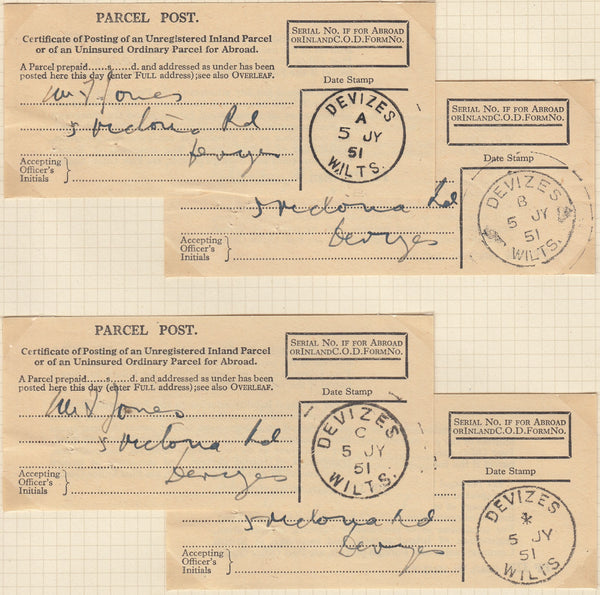 PARCEL POST.
Certificate of Posting of an Unregistered Inland Parcel
or of an Uninsured Ordinary Parcel for Abroad.
A Parcel prepaid......s......d. and addressed as under has been
posted here this day (enter FULL address); see also OVERLEAF.
Mr J. Jones
5 Victoria Rd
Devizes
Accepting
Officer's
Initials
SERIAL NO. IF FOR ABROAD
OR INLAND C.O.D. FORM NO.
Date Stamp
DEVIZES
A
5 JY
51
WILTS.
SERIAL NO. IF FOR ABROAD
OR INLAND C.O.D. FORM NO.
Date Stamp
5 Victoria Rd
Devizes
Accepting
Officer's
Initials
DEVIZES
B
5 JY
51
WILTS.
PARCEL POST.
Certificate of Posting of an Unregistered Inland Parcel
or of an Uninsured Ordinary Parcel for Abroad.
A Parcel prepaid......s......d. and addressed as under has been
posted here this day (enter FULL address); see also OVERLEAF.
Mr J. Jones
5 Victoria Rd
Devizes
Accepting
Officer's
Initials
SERIAL NO. IF FOR ABROAD
OR INLAND C.O.D. FORM NO.
Date Stamp
DEVIZES
C
5 JY
51
WILTS.
SERIAL NO. IF FOR ABROAD
OR INLAND C.O.D. FORM NO.
Date Stamp
5 Victoria Rd
Devizes
Accepting
Officer's
Initials
DEVIZES
*
5 JY
51
WILTS.